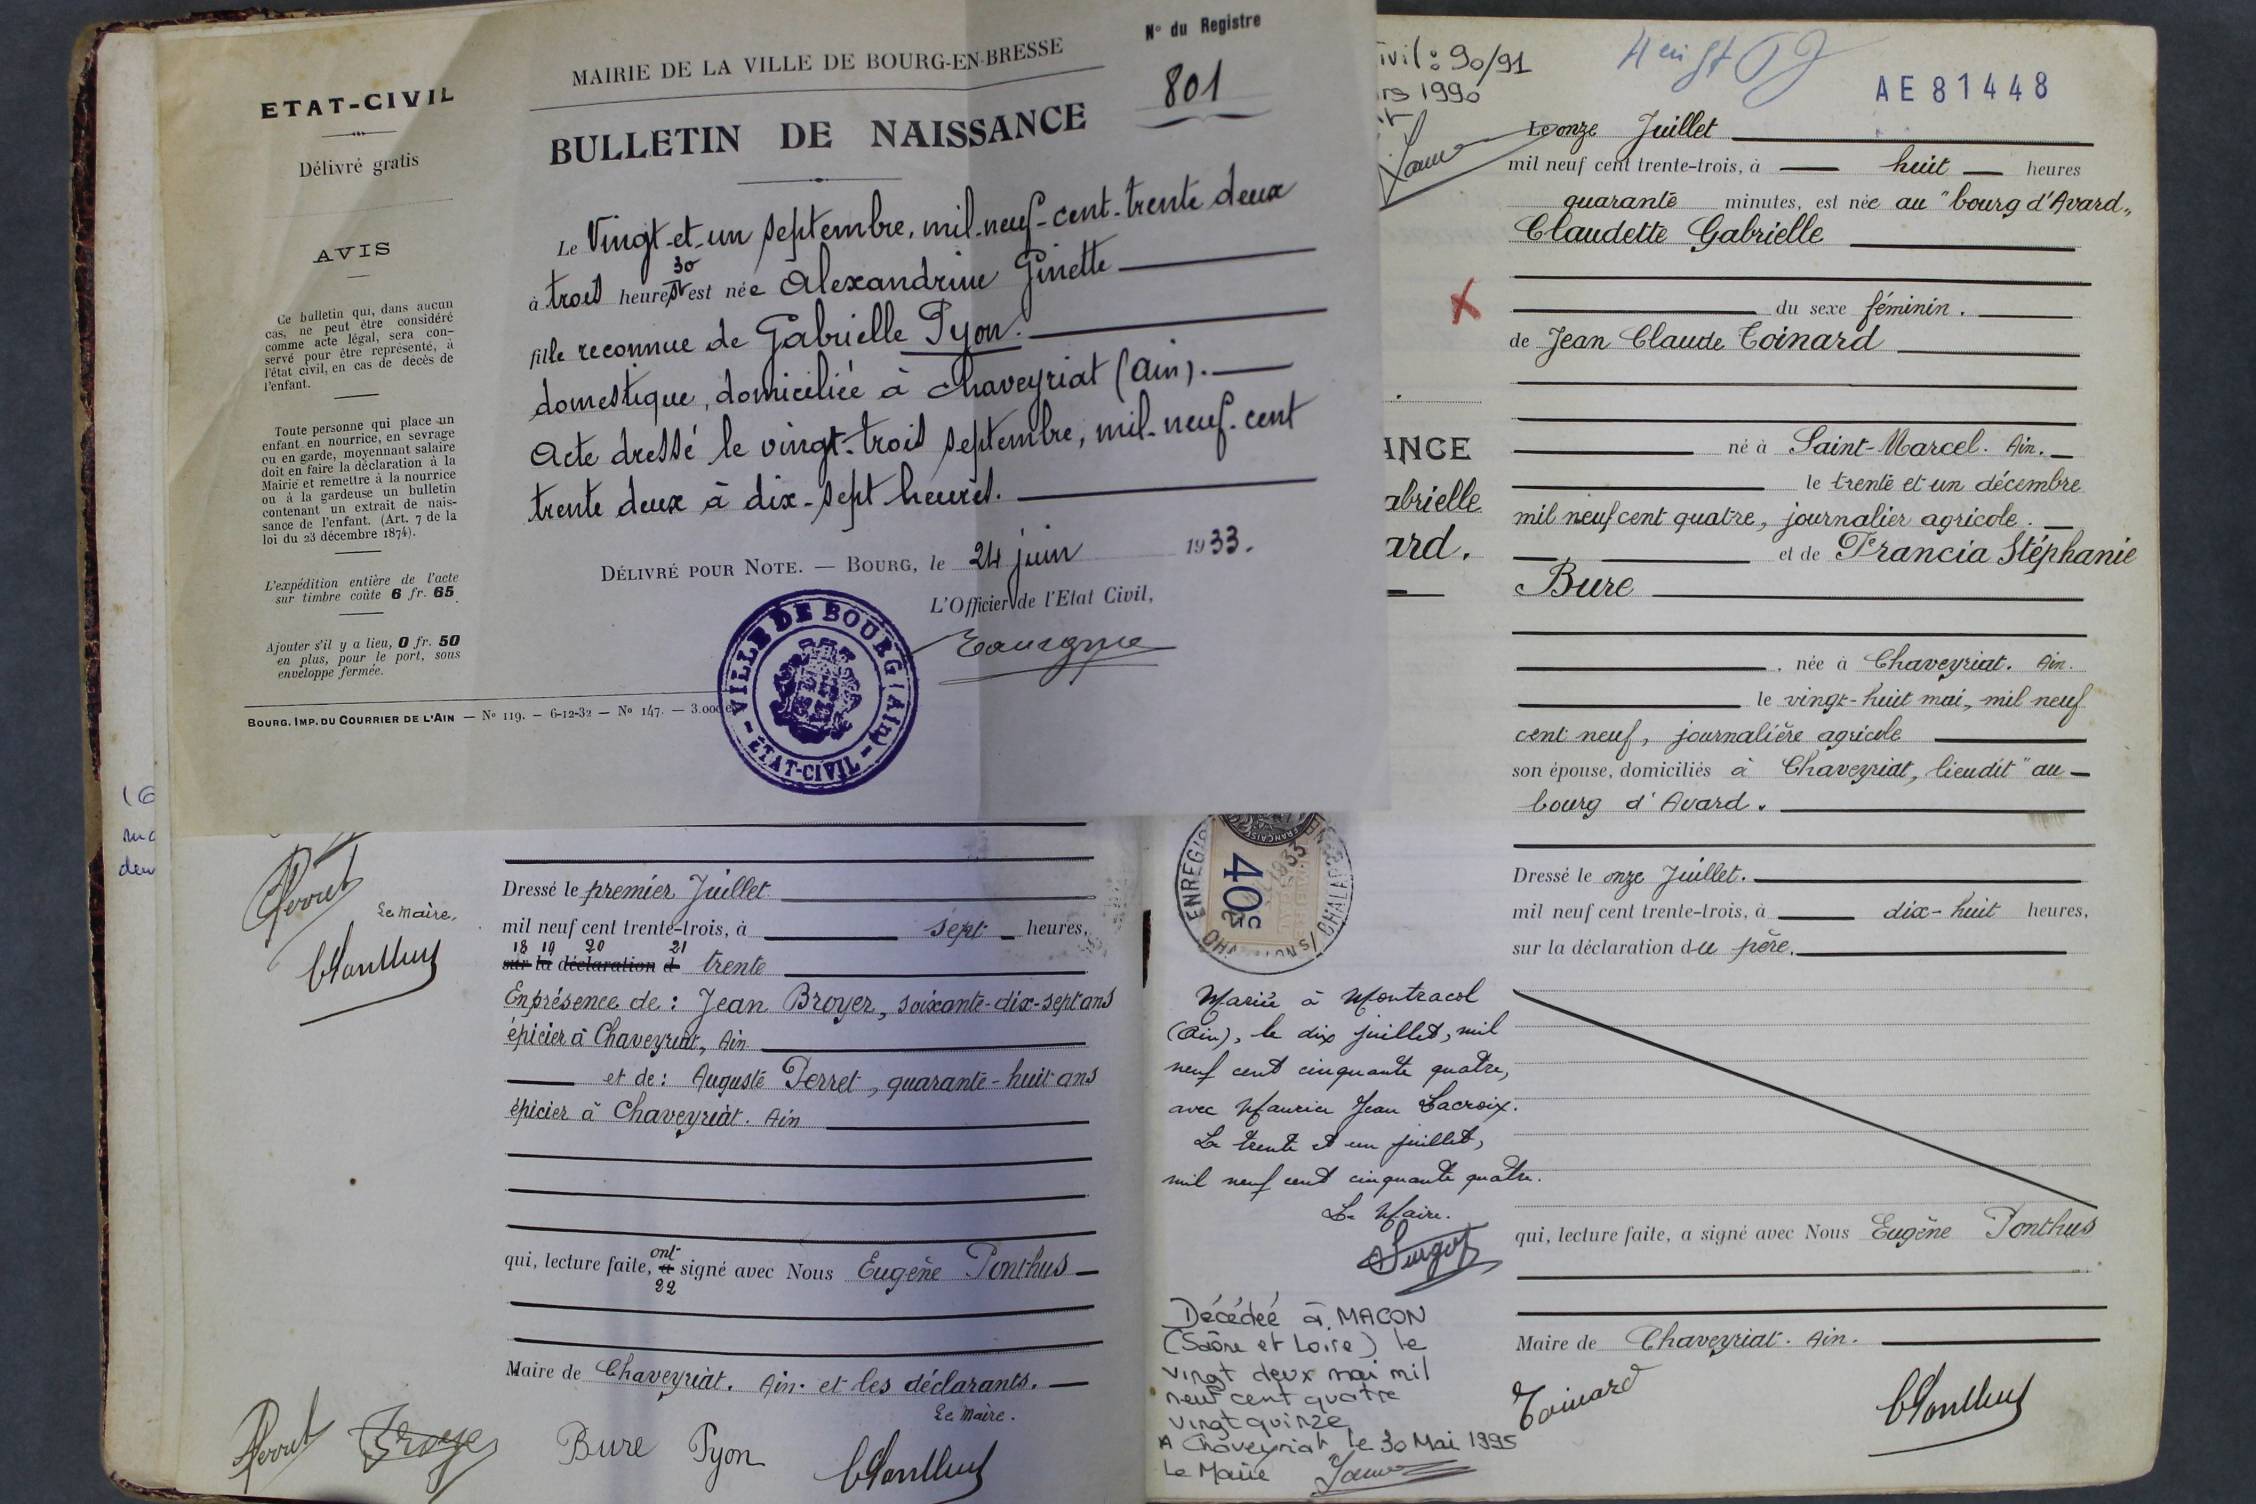 ETAT-CIVIL
Délivré gratis
AVIS
Ce bulletin qui, dans aucun
cas, ne peut être considéré
comme acte légal, sera con-
servé pour être représenté, à
l'état civil, en cas de décès de
l'enfant.
Toute personne qui place un
enfant en nourrice, en sevrage
ou en garde, moyennant salaire
doit en faire la déclaration à la
Mairie et remettre à la nourrice
ou à la gardeuse un bulletin
contenant un extrait de nais-
sance de l'enfant. (Art. 7 de la
loi du 23 décembre 1874).
L'expédition entière de l'acte
sur timbre coûte 6 fr. 65
Ajouter s'il y a lieu, 0 fr. 50
en plus, pour le port, sous
enveloppe fermée.
MAIRIE DE LA VILLE DE BOURG-EN-BRESSE
N° du Registre
801
BULLETIN DE NAISSANCE
Le Vingt-et-un septembre, mil-neuf-cent-trente deux
à trois heures 30 est née Alexandrine Ginette
fille reconnue de Gabrielle Pyon.
domestique, domiciliée à Chaveyriat (Ain).
Acte dressé le vingt-trois septembre, mil-neuf-cent
trente deux à dix-sept heures.
DÉLIVRÉ POUR NOTE. — BOURG, le 24 juin 1933.
L'Officier de l'Etat Civil,
VILLE DE BOURG (AIN)
- ÉTAT-CIVIL -
BOURG. IMP. DU COURRIER DE L'AIN — N° 119. — 6-12-32 — N° 147. — 3.000 e
Perret
Le Maire.
EPonthus
Dressé le premier Juillet
mil neuf cent trente-trois, à sept heures,
18 19 20 21
sur la déclaration d trente
En présence de : Jean Broyer, soixante-dix-sept ans
épicier à Chaveyriat, Ain
et de : Auguste Perret, quarante-huit ans
épicier à Chaveyriat. Ain
ont
qui, lecture faite, a signé avec Nous Eugène Ponthus
22
Maire de Chaveyriat. Ain. et les déclarants.
Le Maire.
Perret Broyer Bure Pyon EPonthus
ivil : 90/91
rs 1990
ANCE
abrielle
ard.
40c
1933
Mariée à Montracol
(Ain), le dix juillet, mil
neuf cent cinquante quatre,
avec Maurice Jean Lacroix.
Le trente et un juillet,
mil neuf cent cinquante quatre.
Le Maire.
Décédée à MACON
(Saône et Loire) le
vingt deux mai mil
neuf cent quatre
vingt quinze
A Chaveyriat le 30 Mai 1995
Le Maire
AE 81448
Le onze Juillet
mil neuf cent trente-trois, à huit heures
quarante minutes, est née au "bourg d'Avard"
Claudette Gabrielle
du sexe féminin.
de Jean Claude Toinard
né à Saint-Marcel. Ain.
le trente et un décembre
mil neuf cent quatre, journalier agricole.
et de Francia Stéphanie
Bure
, née à Chaveyriat. Ain.
le vingt-huit mai, mil neuf
cent neuf, journalière agricole
son épouse, domiciliés à Chaveyriat, lieudit "au
bourg d'Avard.
Dressé le onze Juillet.
mil neuf cent trente-trois, à dix-huit heures,
sur la déclaration du père.
qui, lecture faite, a signé avec Nous Eugène Ponthus
Maire de Chaveyriat. Ain.
Toinard EPonthus